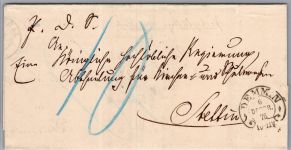 P. D. S.
An
Eine Königliche Hochlöbliche Regierung
Abtheilung für Kirchen- und Schulwesen
Stettin
10
DEMMIN
6